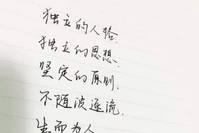 独立的人格.
独立的思想.
坚定的原则.
不随波逐流.
生而为人